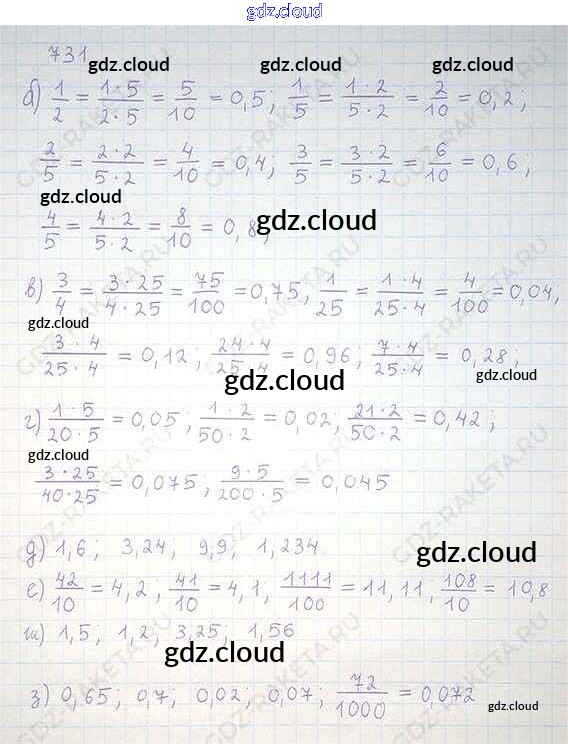 gdz.cloud
731 gdz.cloud gdz.cloud
б) 1/2 = 1·5/2·5 = 5/10 = 0,5; 1/5 = 1·2/5·2 = 2/10 = 0,2;
2/5 = 2·2/5·2 = 4/10 = 0,4; 3/5 = 3·2/5·2 = 6/10 = 0,6;
gdz.cloud
4/5 = 4·2/5·2 = 8/10 = 0,8; gdz.cloud
в) 3/4 = 3·25/4·25 = 75/100 = 0,75, 1/25 = 1·4/25·4 = 4/100 = 0,04,
gdz.cloud
3·4/25·4 = 0,12; 24·4/25·4 = 0,96; 7·4/25·4 = 0,28;
gdz.cloud gdz.cloud
г) 1·5/20·5 = 0,05; 1·2/50·2 = 0,02; 21·2/50·2 = 0,42;
gdz.cloud
3·25/40·25 = 0,075, 9·5/200·5 = 0,045
д) 1,6; 3,24, 9,9, 1,234. gdz.cloud
е) 42/10 = 4,2; 41/10 = 4,1; 1111/100 = 11,11, 108/10 = 10,8
ж) 1,5; 1,2; 3,25; 1,56
gdz.cloud
з) 0,65; 0,7; 0,02; 0,07; 72/1000 = 0,072 gdz.cloud
GDZ-RAKETA.RU